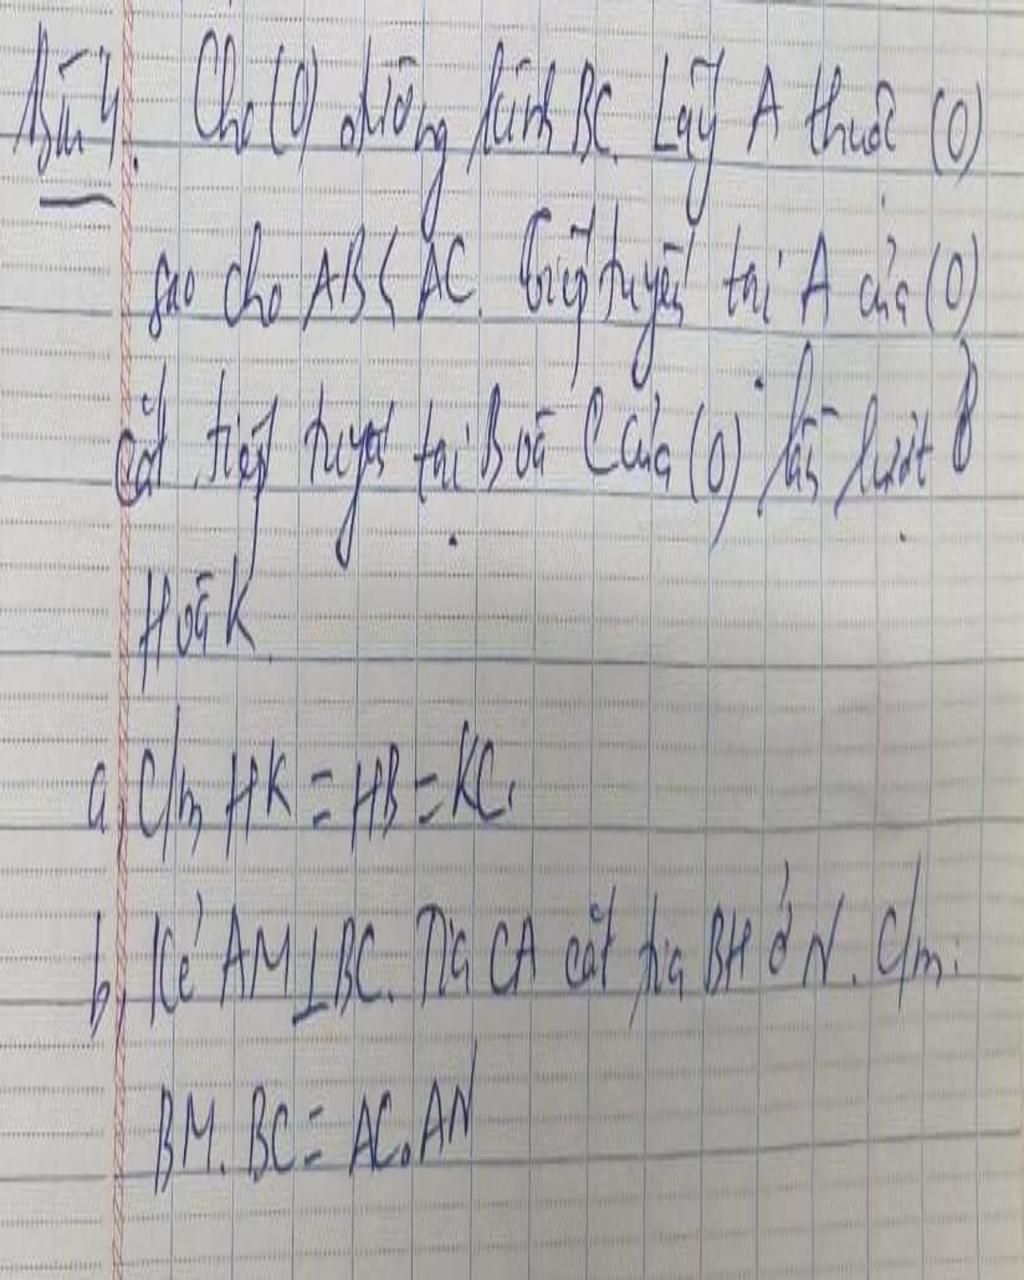 Bài 4. Cho (O) đường kính BC. Lấy A thuộc (O)
sao cho AB < AC. Tiếp tuyến tại A của (O)
cắt tiếp tuyến tại B và C của (O) lần lượt ở
H và K.
a, C/m HK = HB = KC.
b, Kẻ AM ⊥ BC. Tia CA cắt tia BH ở N. C/m:
BM. BC = AC. AN